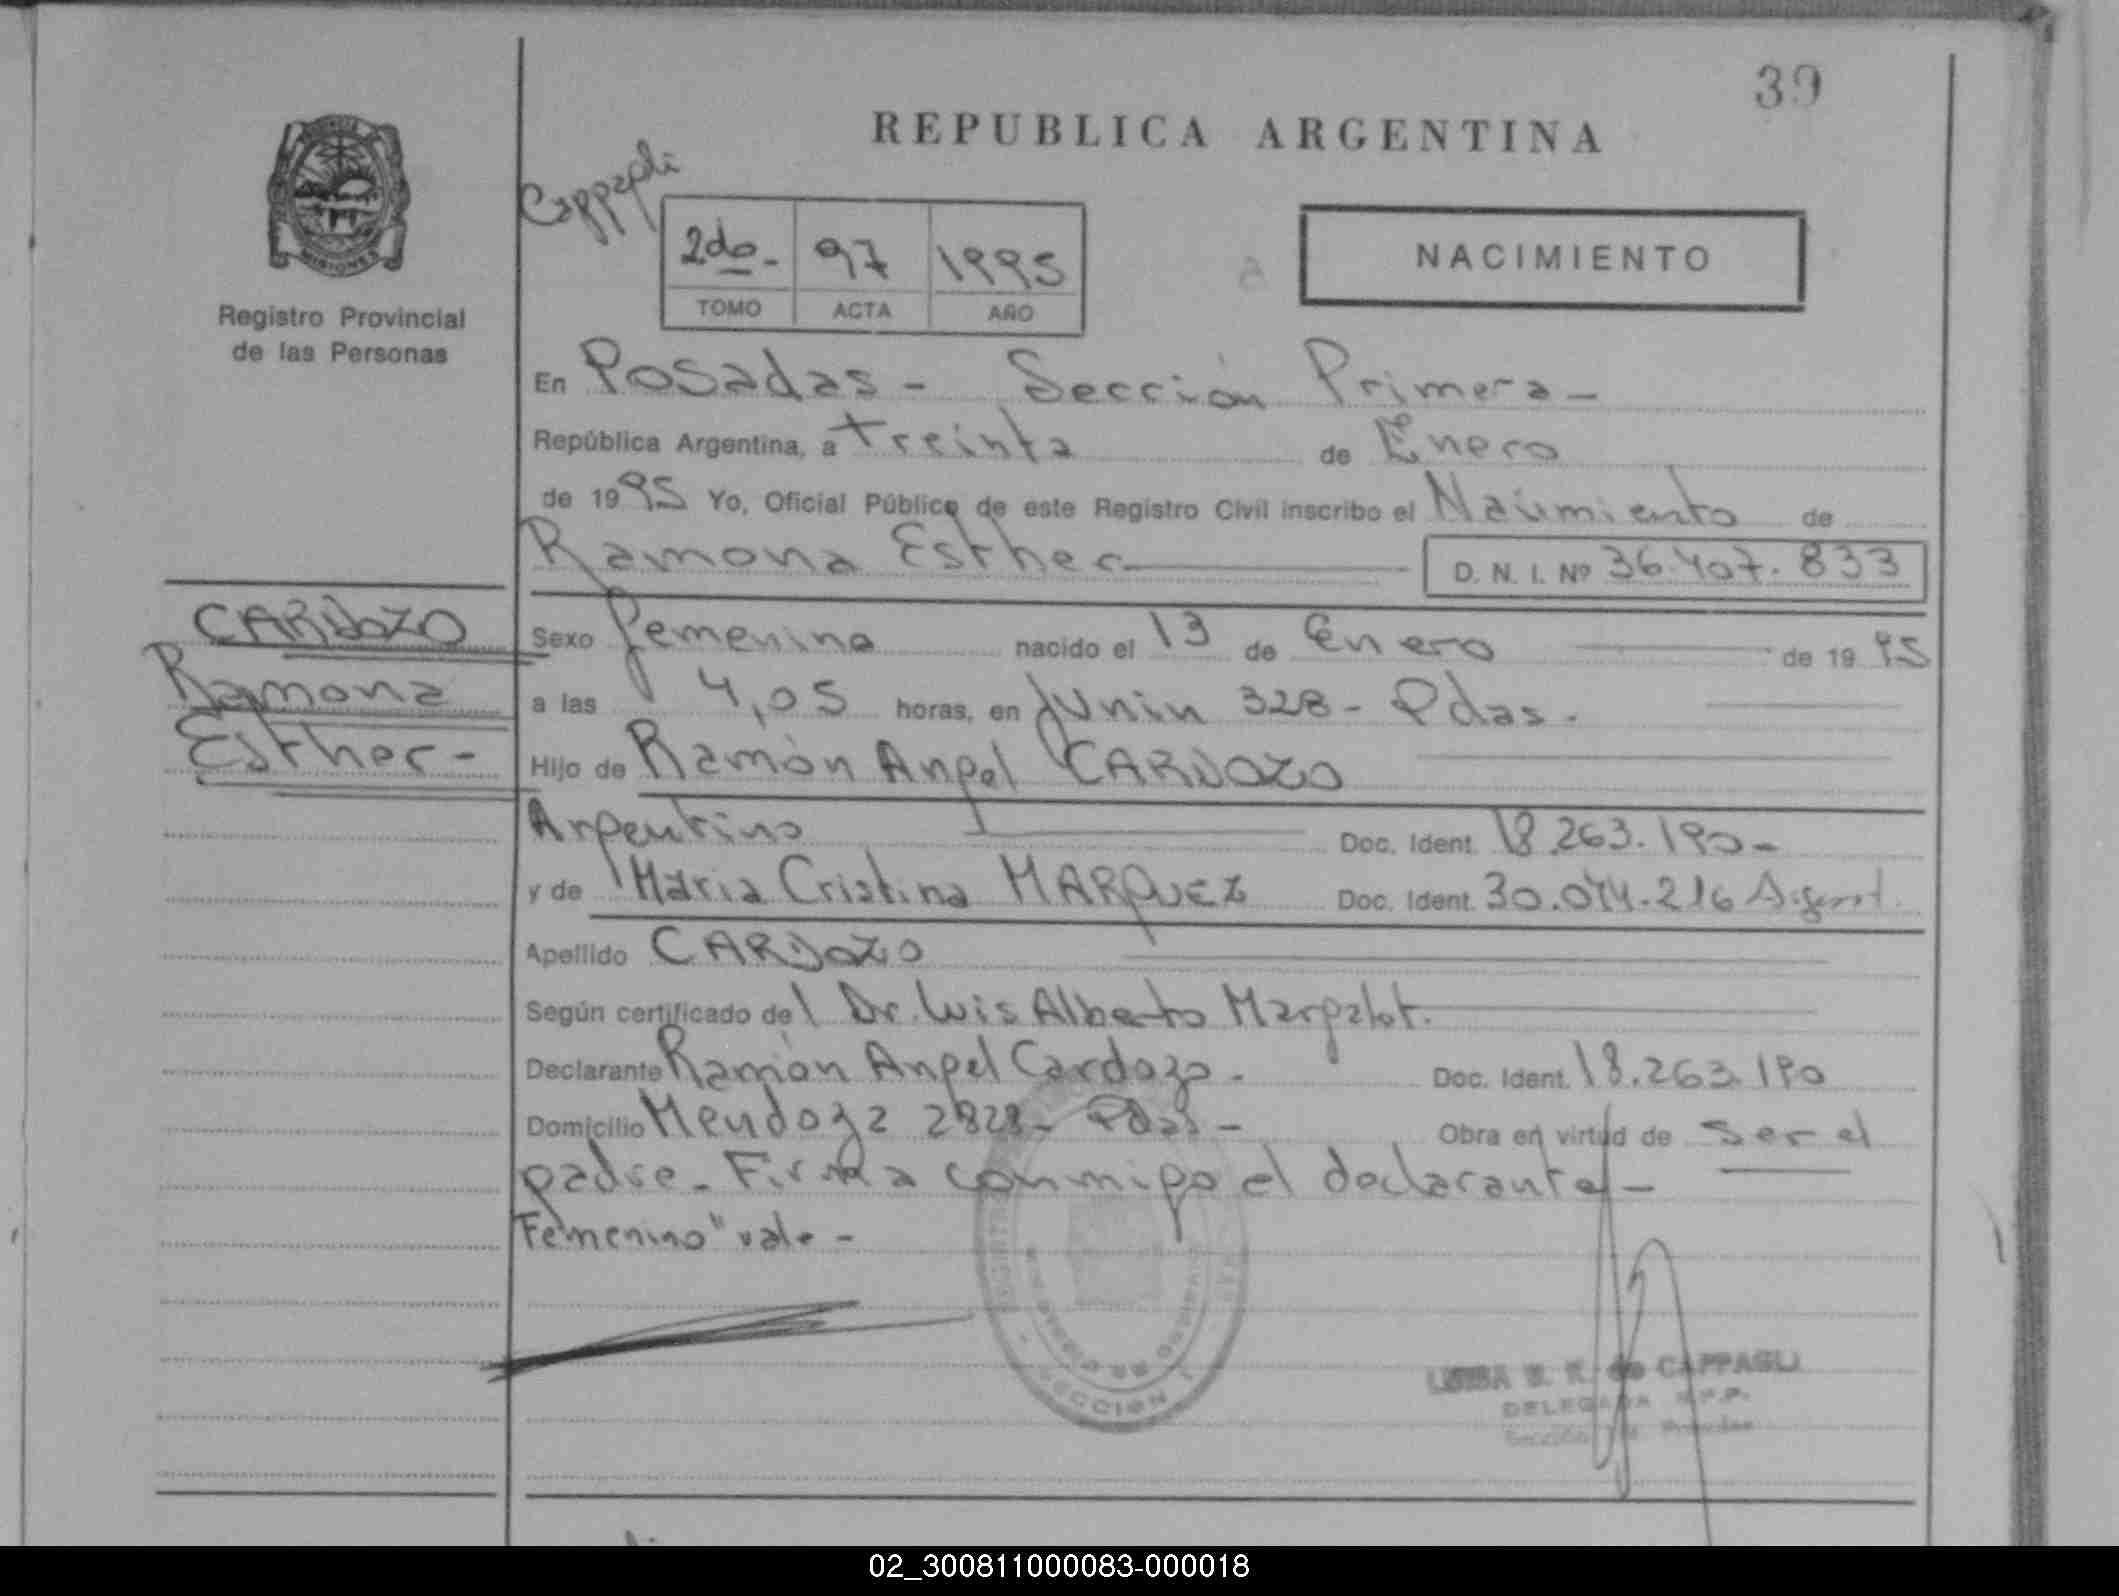 39
REPUBLICA ARGENTINA
Cappagli
2do- 97 1995
TOMO ACTA AÑO
NACIMIENTO
MISIONES
Registro Provincial
de las Personas
En Posadas - Sección Primera -
República Argentina, a treinta de Enero
de 1995 Yo, Oficial Público de este Registro Civil inscribo el Nacimiento de
Ramona Esther D. N. I. Nº 36.407.833
CARDOZO
Ramona
Esther -
Sexo femenino nacido el 13 de Enero de 1995
a las 4,05 horas, en Junin 328 - Pdas.
Hijo de Ramón Angel CARDOZO
Argentino Doc. Ident. 18.263.190 -
y de Maria Cristina MARQUEZ Doc. Ident. 30.074.216 Argent.
Apellido CARDOZO
Según certificado del Dr. Luis Alberto Margalot.
Declarante Ramón Angel Cardozo - Doc. Ident. 18.263.190
Domicilio Mendoza 2828 - Pdas - Obra en virtud de ser el
padre - Firma conmigo el declarante -
Femenino" vale -
SECCION 1
de CAPPAGLI
DELEGADA R.P.P.
02_300811000083-000018